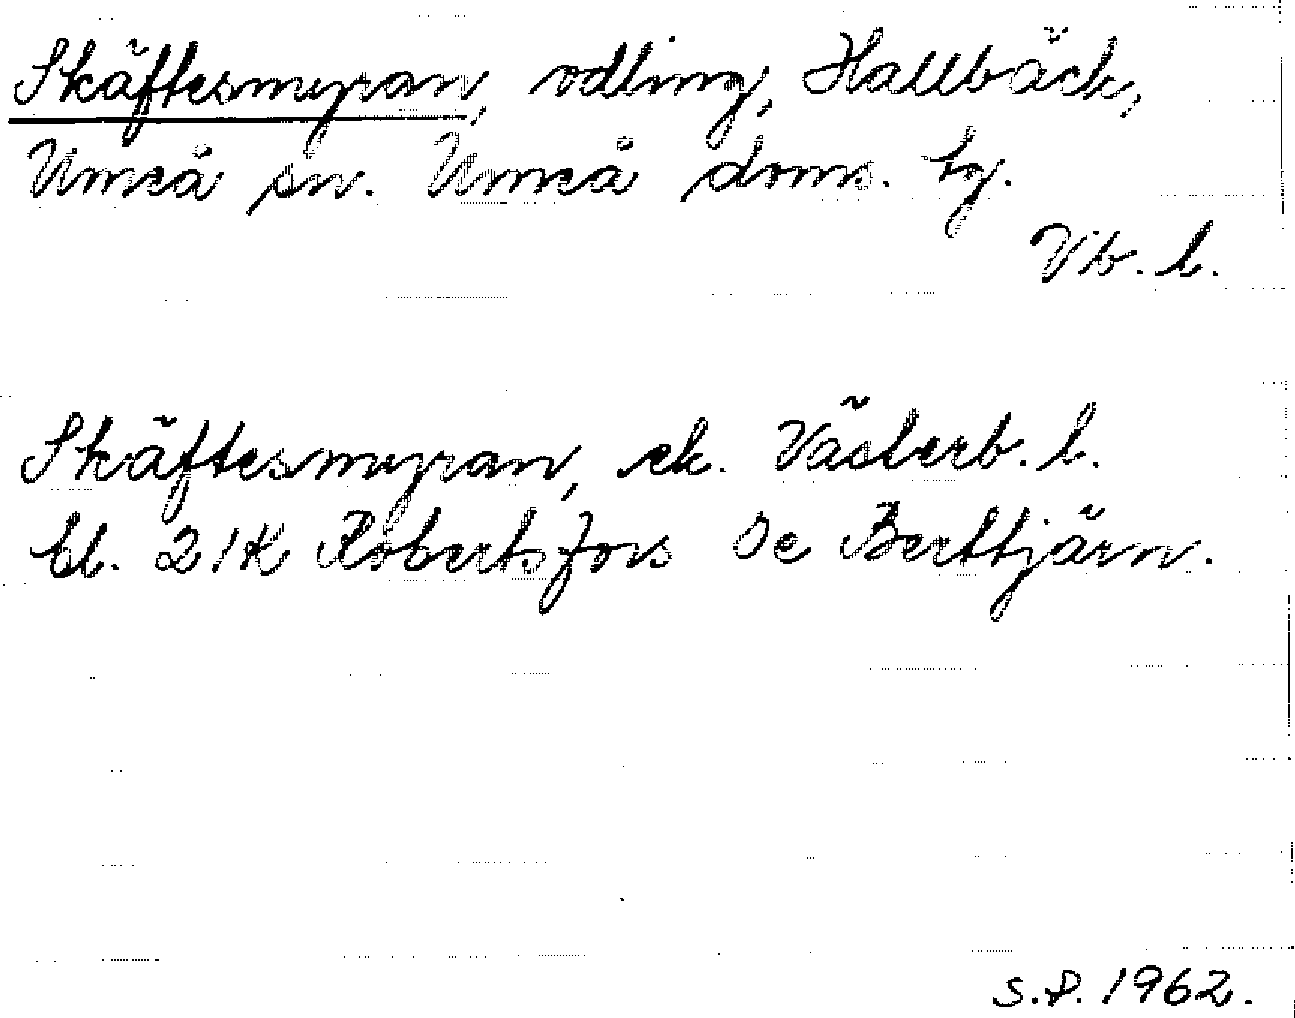 Skäftesmyran, odling, Hallbäck,
Umeå sn. Umeå doms. tg.
Vb. l.
Skäftesmyran, ek. Västerb. l.
bl. 21K Robertsfors 5e Berttjärn.
S.P. 1962.